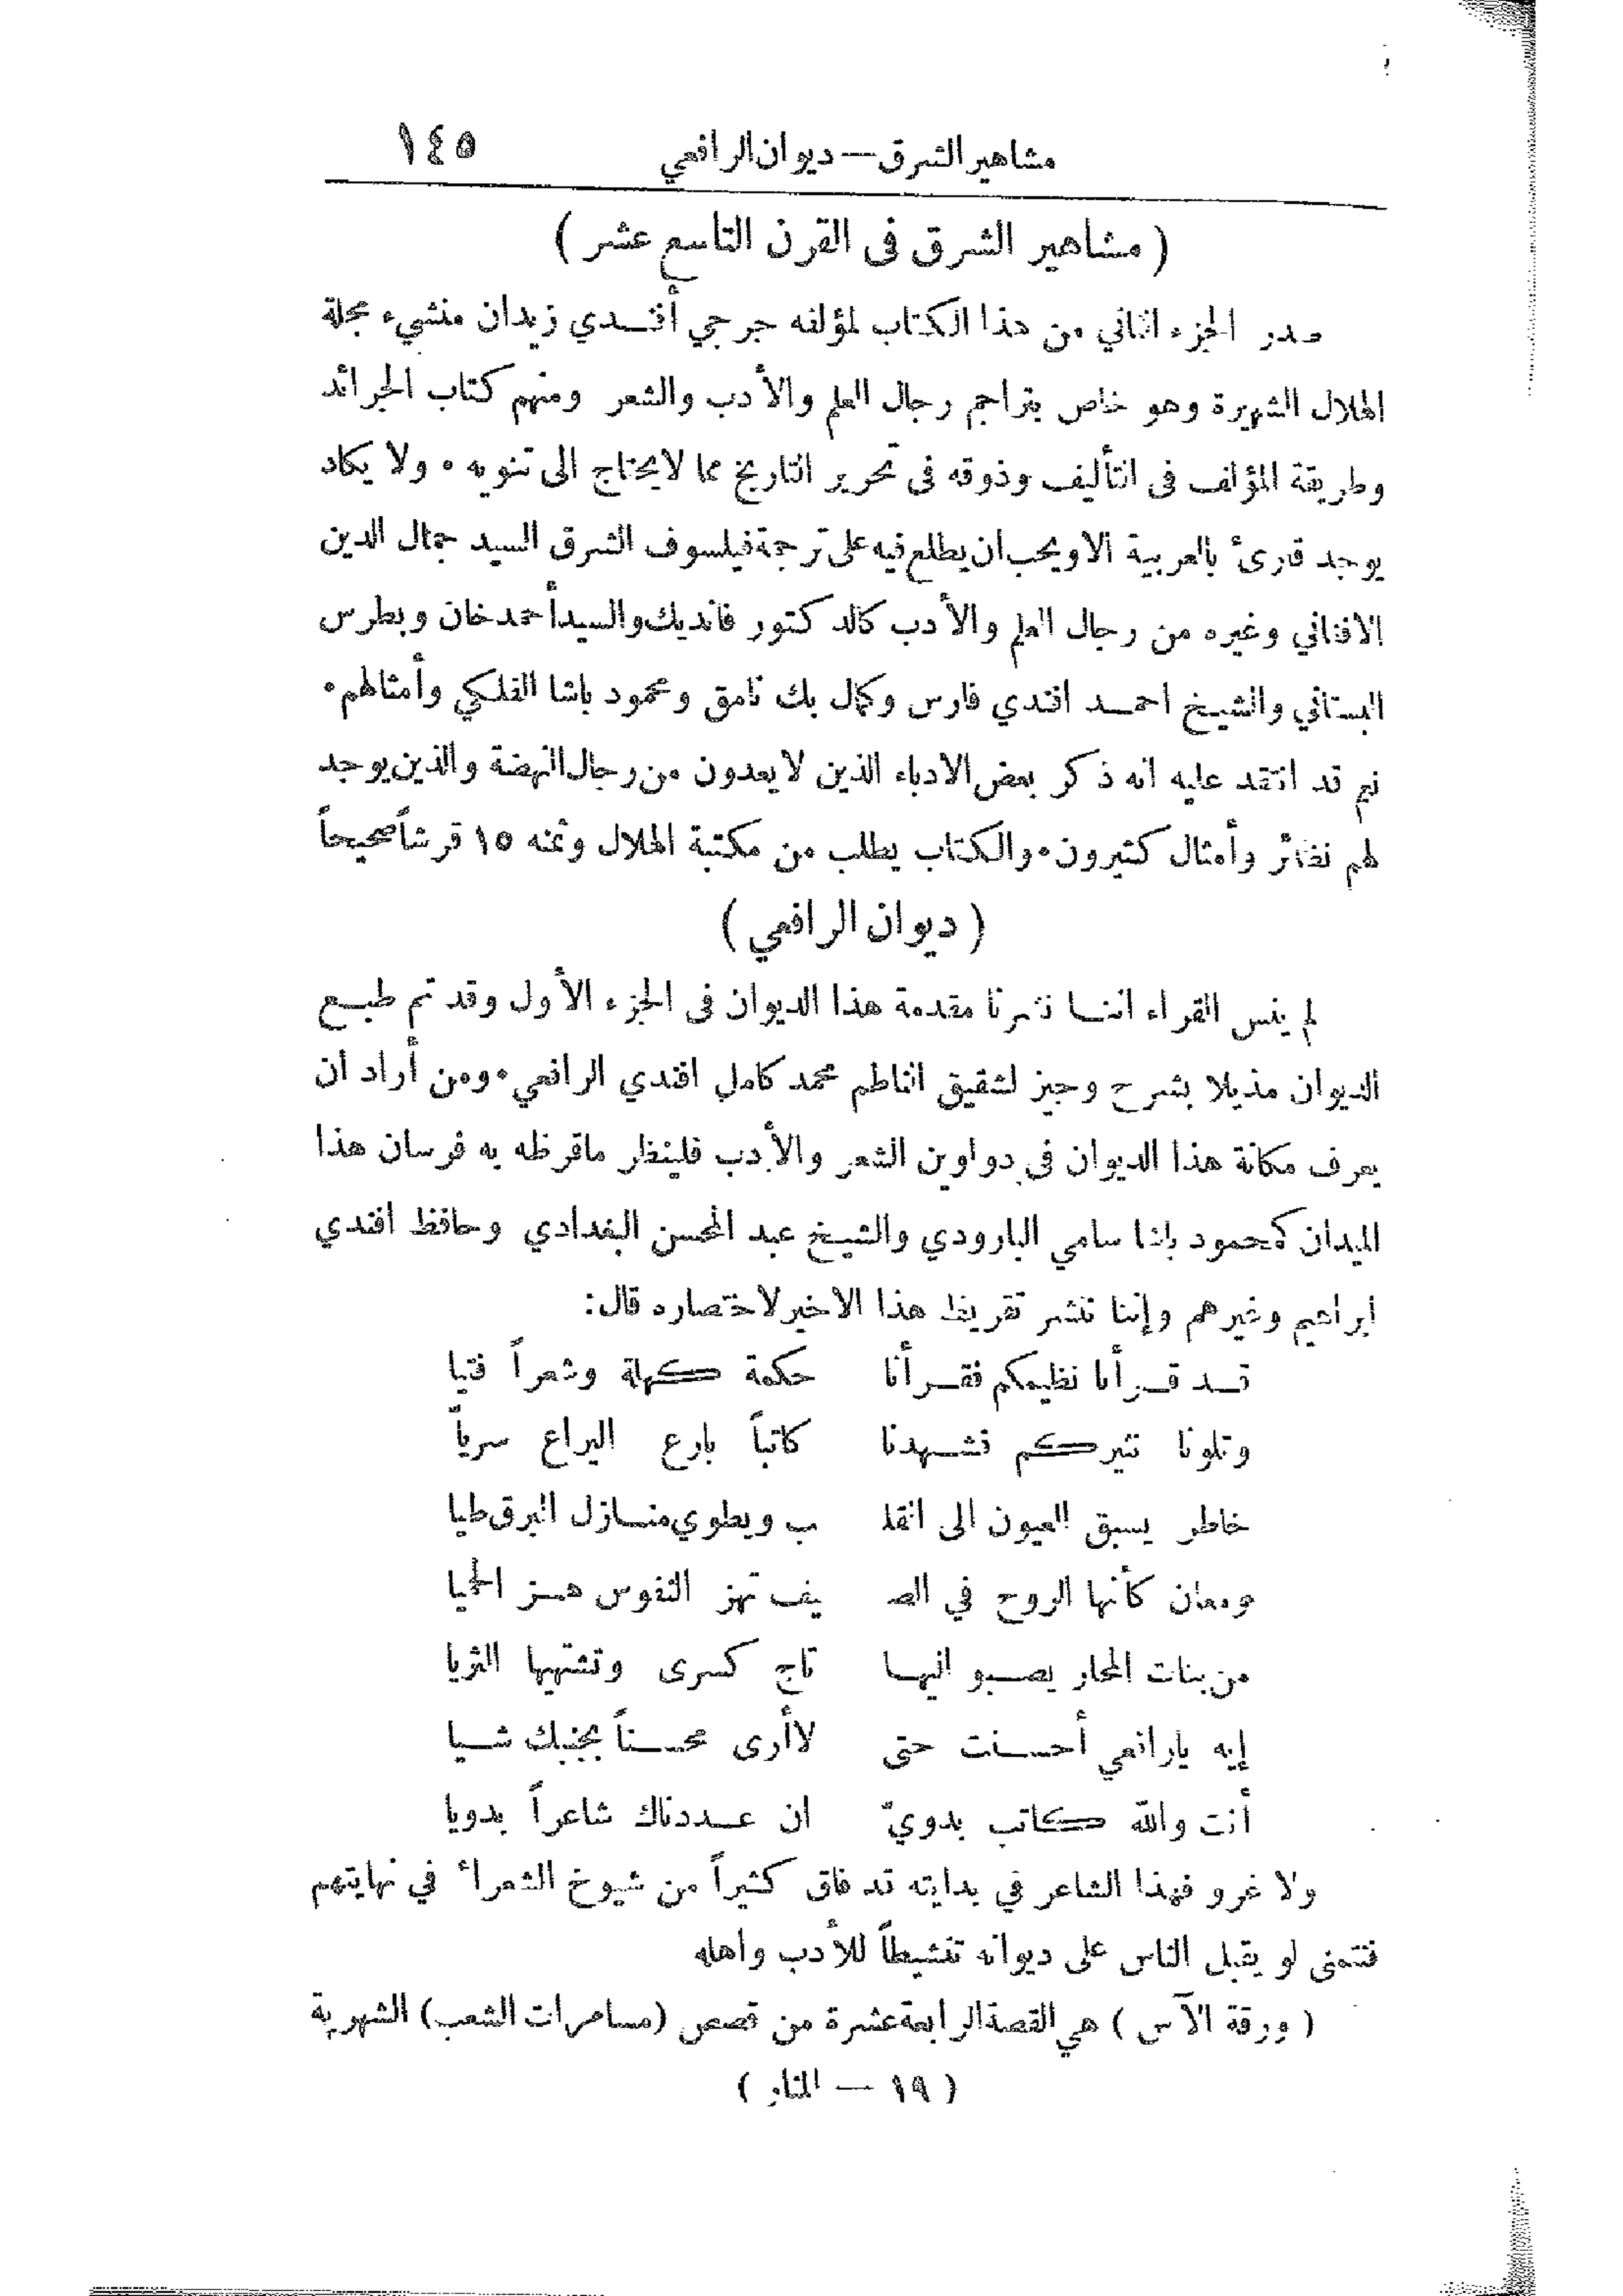 مشاهير الشرق — ديوان الرافعي ١٤٥
( مشاهير الشرق فى القرن التاسع عشر )
صدر الجزء الثاني من هذا الكتاب لمؤلفه جرجي أفندي زيدان منشيء مجلة
الهلال الشهيرة وهو خاص بتراجم رجال العلم والأدب والشعر ومنهم كتاب الجرائد
وطريقة المؤلف فى التأليف وذوقه فى تحرير التاريخ مما لا يحتاج الى تنويه . ولا يكاد
يوجد قارئ بالعربية الا ويحب ان يطلع فيه على ترجمة فيلسوف الشرق السيد جمال الدين
الافغاني وغيره من رجال العلم والأدب كالدكتور فانديك والسيد أحمد خان وبطرس
البستاني والشيخ احمد افندي فارس وكمال بك نامق ومحمود باشا الفلكي وأمثالهم .
نعم قد انتقد عليه انه ذكر بعض الادباء الذين لا يعدون من رجال النهضة والذين يوجد
لهم نظائر وأمثال كثيرون . والكتاب يطلب من مكتبة الهلال وثمنه ١٥ قرشاً صحيحاً
( ديوان الرافعي )
لم ينس القراء اننا نشرنا مقدمة هذا الديوان فى الجزء الأول وقد تم طبع
الديوان مذيلا بشرح وجيز لشقيق الناظم محمد كامل افندي الرافعي . ومن أراد ان
يعرف مكانة هذا الديوان في دواوين الشعر والأدب فلينظر ماقرظه به فرسان هذا
الميدان كمحمود باشا سامي البارودي والشيخ عبد المحسن البغدادي وحافظ افندي
ابراهيم وغيرهم وإننا ننشر تقريظ هذا الاخير لاختصاره قال :
قد قرأنا نظيمكم فقرأنا حكمة كهلة وشعراً فتيا
وتلونا نثيركم فشهدنا كاتباً بارع اليراع سرياّ
خاطر يسبق العيون الى القلـ ـب ويطوي منازل البرق طيا
ومعان كأنها الروح في الصـ ـيف تهز النفوس هز الحميا
من بنات المحار يصبو اليها تاج كسرى وتشتهيها الثريا
إيه يارافعي أحسنت حتى لاأرى محسناً بجنبك شيا
أنت والله كاتب بدويّ ان عددناك شاعراً بدويا
ولا غرو فهذا الشاعر في بدايته قد فاق كثيراً من شيوخ الشعراء في نهايتهم
فنتمنى لو يقبل الناس على ديوانه تنشيطاً للأدب واهله
( ورقة الآس ) هي القصة الرابعة عشرة من قصص (مسامرات الشعب) الشهرية
( ١٩ — المنار )